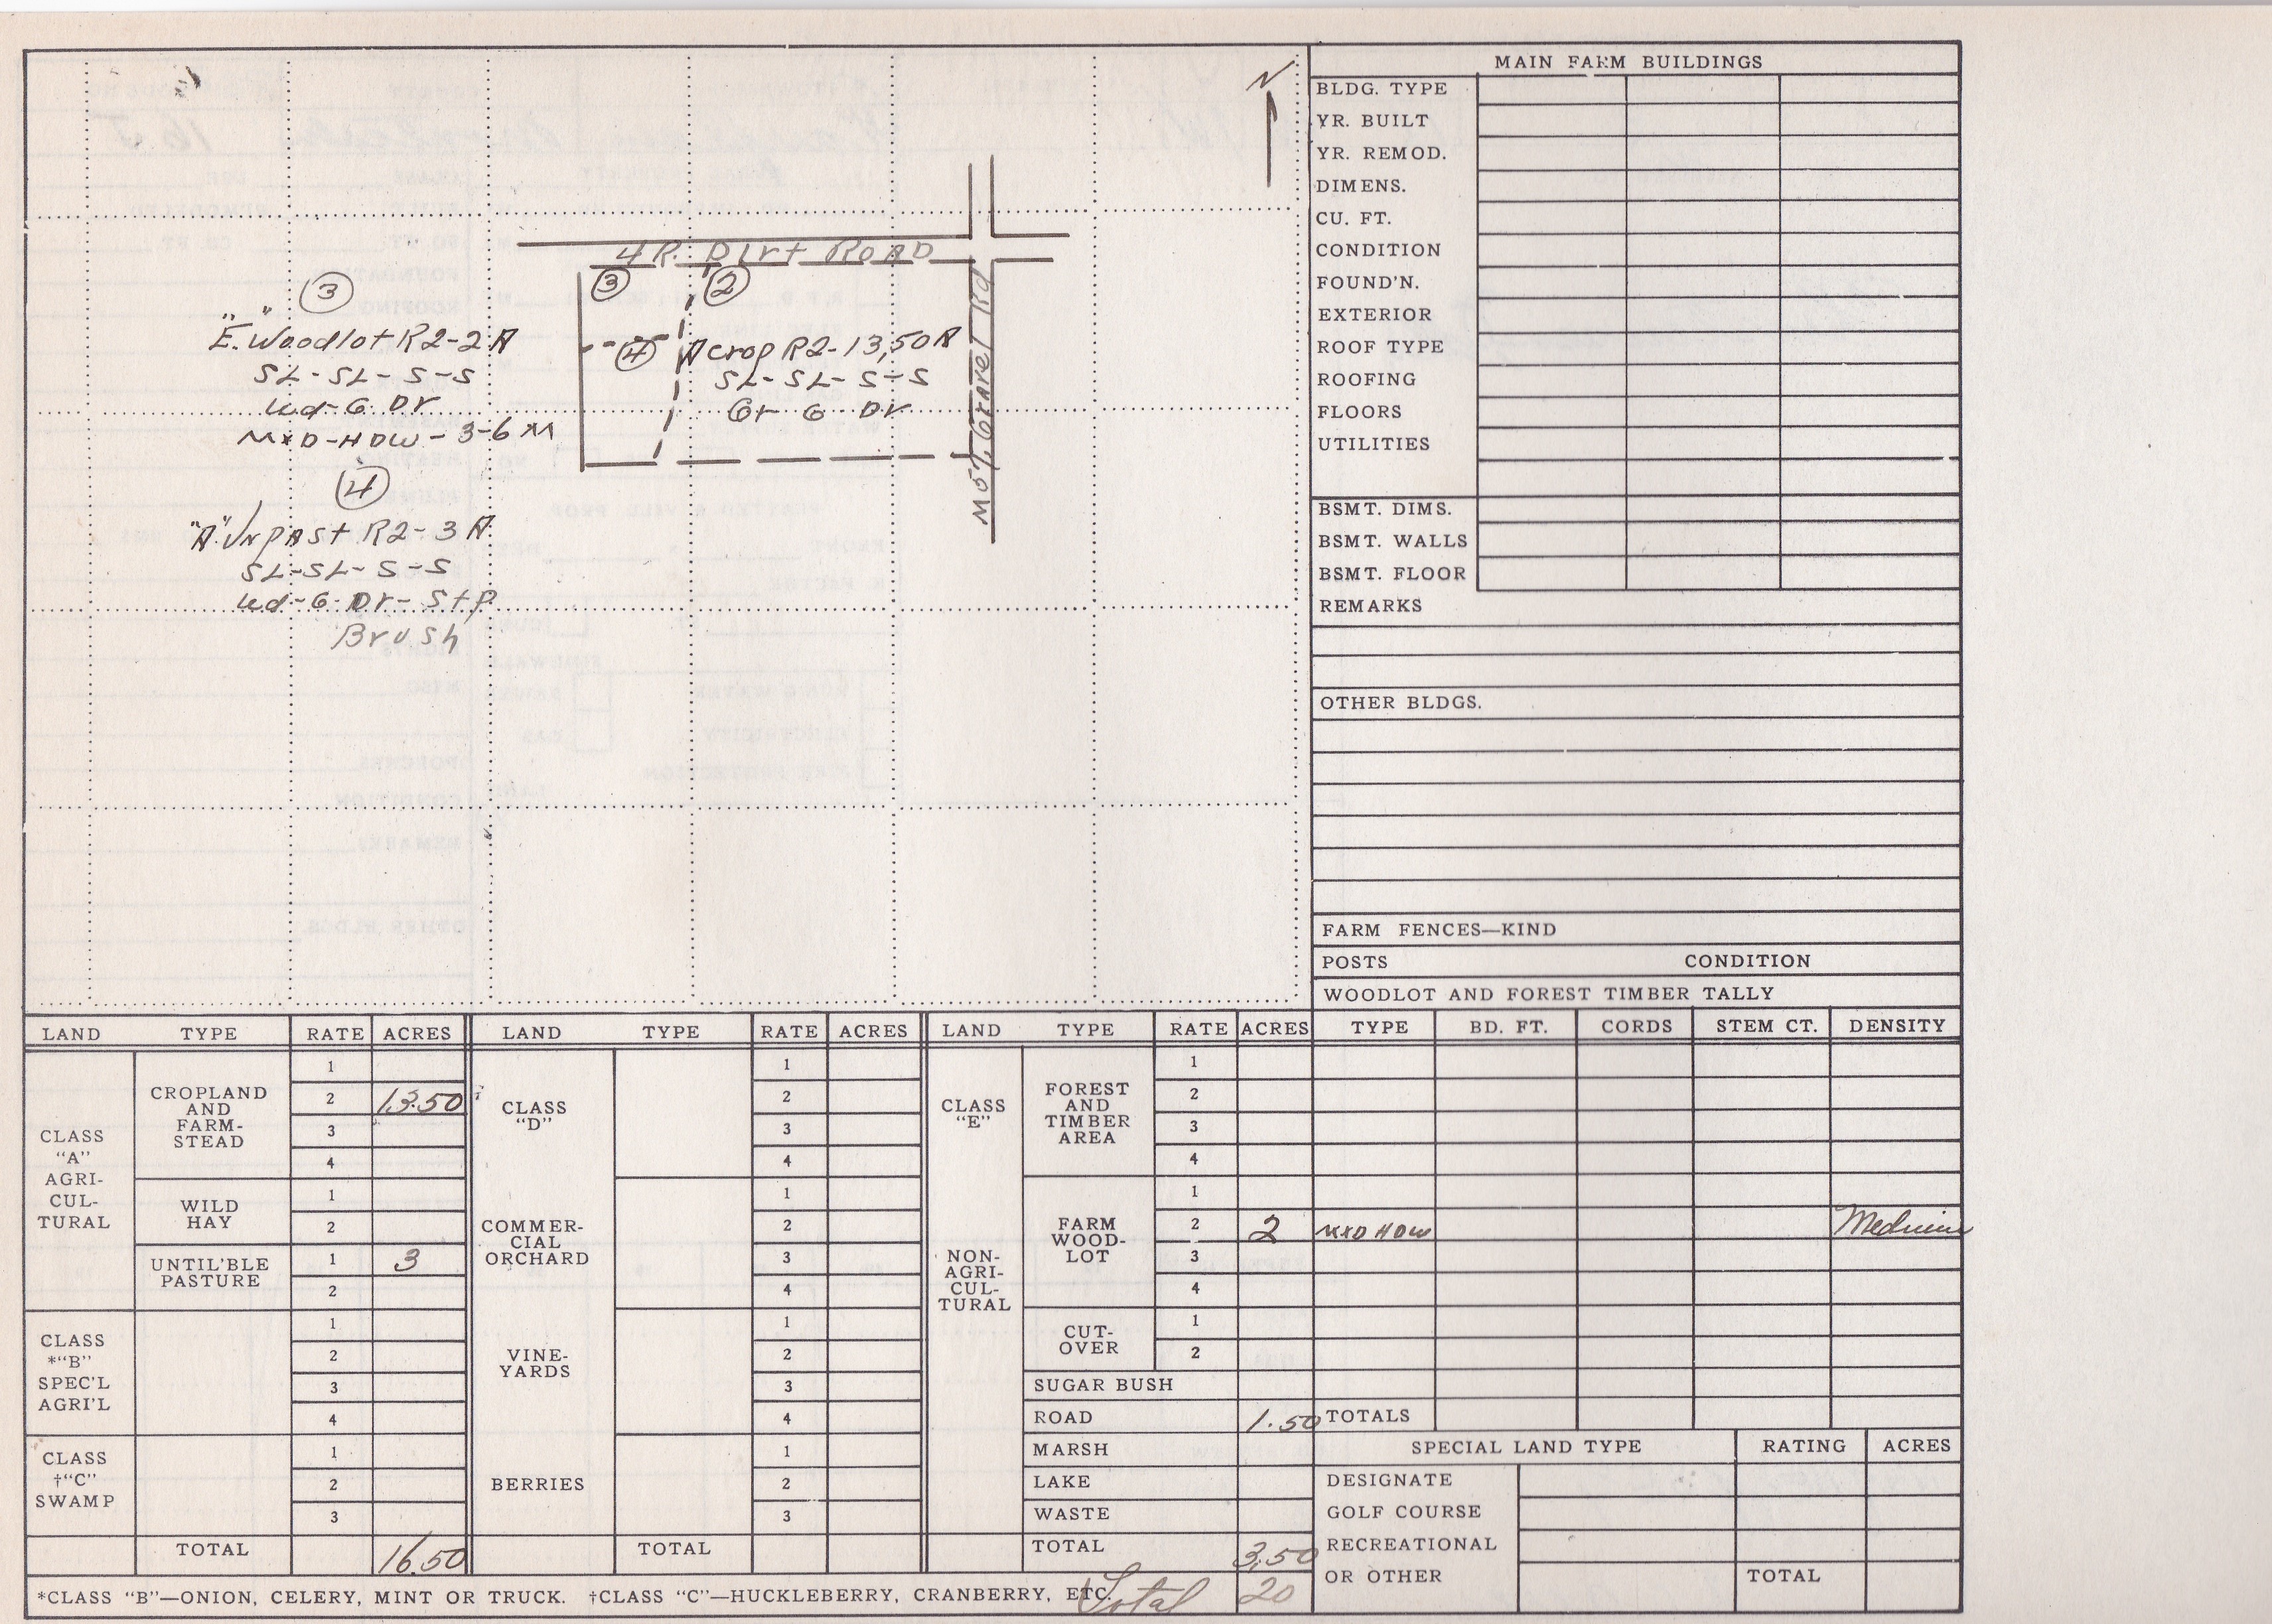 N
4 R. Dirt Road
③ ②
④
③
"E" Woodlot R2-2 A
SL-SL-S-S
Ud-G Dr
MXD-HDW-3-6 M
A crop R2-13,50 A
SL-SL-S-S
Gr G Dr
Gravel Rd
④
"A" Unpast R2-3 A
SL-SL-S-S
Ud-G-Dr-Stp
Brush
MAIN FARM BUILDINGS
BLDG. TYPE
YR. BUILT
YR. REMOD.
DIMENS.
CU. FT.
CONDITION
FOUND'N.
EXTERIOR
ROOF TYPE
ROOFING
FLOORS
UTILITIES
BSMT. DIMS.
BSMT. WALLS
BSMT. FLOOR
REMARKS
OTHER BLDGS.
FARM FENCES—KIND
POSTS CONDITION
WOODLOT AND FOREST TIMBER TALLY
TYPE BD. FT. CORDS STEM CT. DENSITY
MXD HDW Medium
TOTALS
SPECIAL LAND TYPE RATING ACRES
DESIGNATE
GOLF COURSE
RECREATIONAL
OR OTHER TOTAL
LAND TYPE RATE ACRES
CLASS
"A"
AGRI-
CUL-
TURAL
CROPLAND
AND
FARM-
STEAD
1
2 13.50
3
4
WILD
HAY
1
2
UNTIL'BLE
PASTURE
1 3
2
CLASS
*"B"
SPEC'L
AGRI'L
1
2
3
4
CLASS
†"C"
SWAMP
1
2
3
TOTAL 16.50
LAND TYPE RATE ACRES
CLASS
"D"
1
2
3
4
COMMER-
CIAL
ORCHARD
1
2
3
4
VINE-
YARDS
1
2
3
4
BERRIES
1
2
3
TOTAL
LAND TYPE RATE ACRES
CLASS
"E"
NON-
AGRI-
CUL-
TURAL
FOREST
AND
TIMBER
AREA
1
2
3
4
FARM
WOOD-
LOT
1
2 2
3
4
CUT-
OVER
1
2
SUGAR BUSH
ROAD 1.50
MARSH
LAKE
WASTE
TOTAL 3,50
*CLASS "B"—ONION, CELERY, MINT OR TRUCK. †CLASS "C"—HUCKLEBERRY, CRANBERRY, ETC.
Total 20